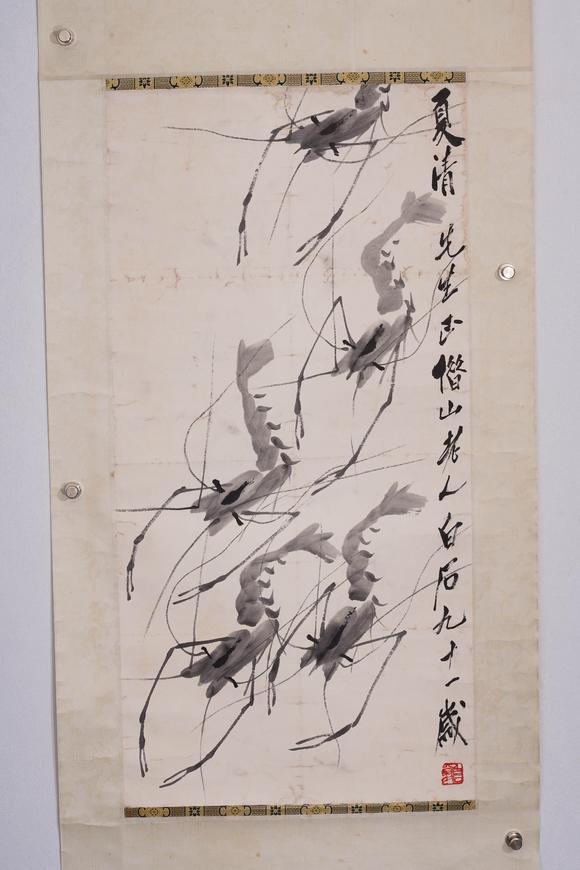 夏清先生正借山老人白石九十一歲